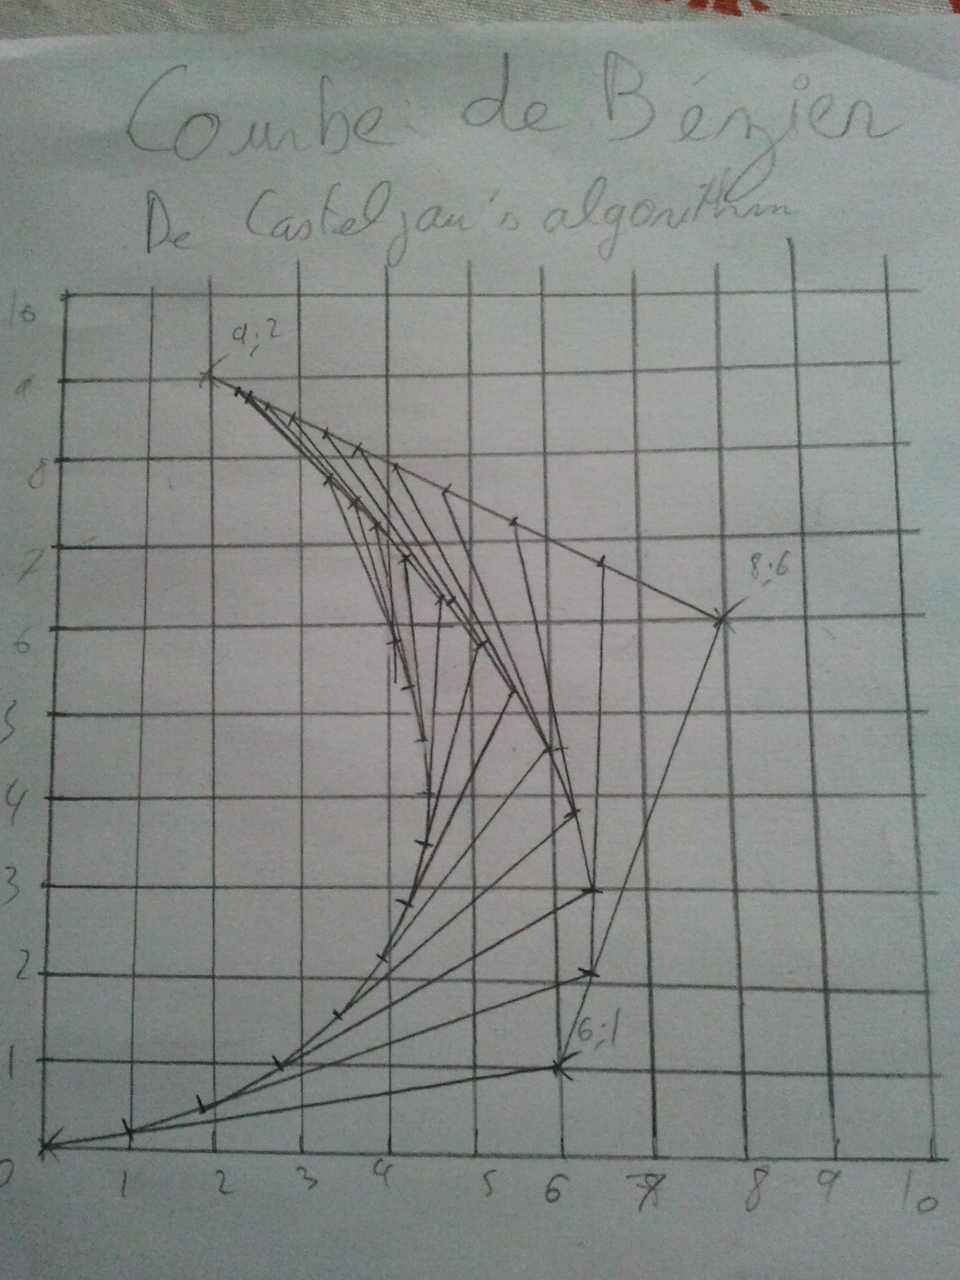 Courbe de Bézier
De Casteljau's algorithm
10
9;2
9
8
7
8;6
6
5
4
3
2
6;1
1
0 1 2 3 4 5 6 7 8 9 10